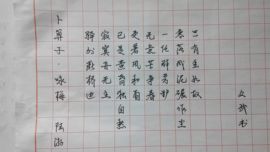 卜算子·咏梅 陆游
驿外断桥边
寂寞开无主
已是黄昏独自愁
更著风和雨
无意苦争春
一任群芳妒
零落成泥碾作尘
只有香如故